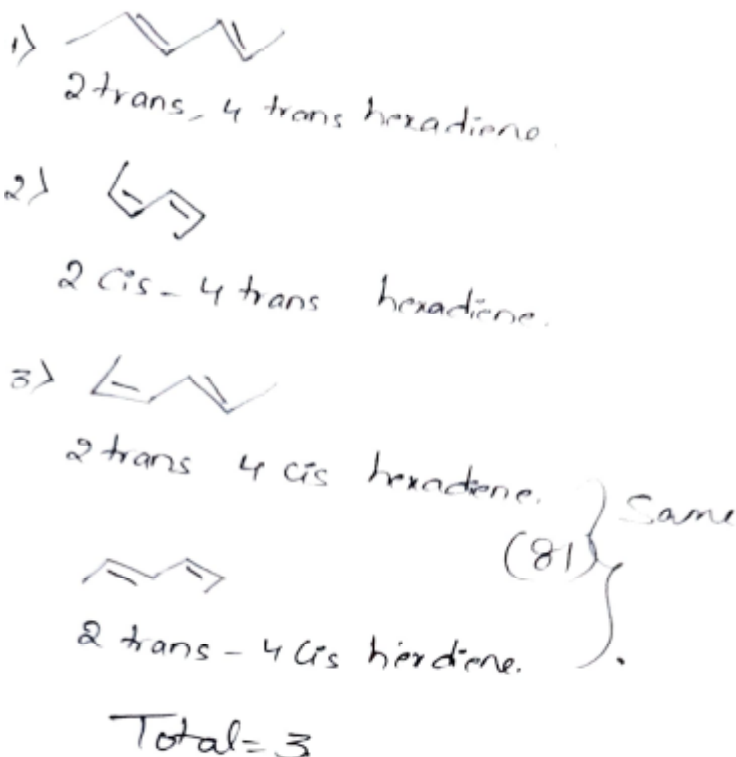 1)
2 trans, 4 trans hexadiene.
2)
2 Cis - 4 trans hexadiene.
3)
2 trans 4 cis hexadiene. } Same
(81)
2 trans - 4 Cis hexdiene.
Total = 3